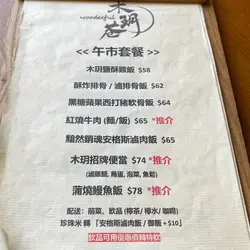 木玥荅
wonderful
<< 午市套餐 >>
木玥鹽酥雞飯 $58
酥炸排骨 / 滷排骨飯 $62
黑糖蘋果西打豬軟骨飯 $64
紅燒牛肉 (麵/飯) $65 *推介
黯然銷魂安格斯滷肉飯 $65
木玥招牌便當 $74 *推介
(滷雞髀, 鳥蛋, 泡菜, 魚鬆)
蒲燒鰻魚飯 $78 *推介
配送：前菜、飲品 (檸茶/ 檸水/ 咖啡)
珍珠米 轉「安格斯滷肉飯 / 御飯 + $10」
飲品可用優惠價轉特飲